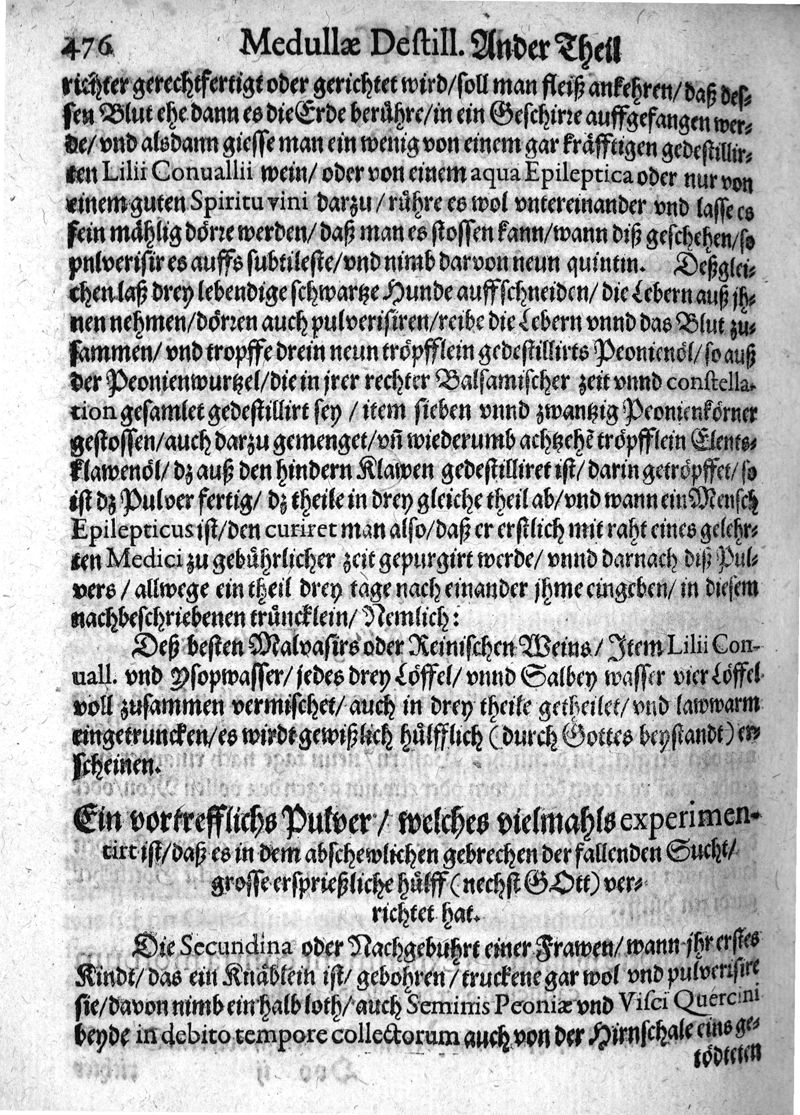 476 Medullæ Destill. Ander Theil
richter gerechtfertigt oder gerichtet wird/ soll man fleiß ankehren/ daß des-
sen Blut ehe dann es die Erde berühre/ in ein Geschirre auffgefangen wer-
de/ vnd alsdann giesse man ein wenig von einem gar kräfftigen gedestillir-
ten Lilii Conuallii wein/ oder von einem aqua Epileptica oder nur von
einem guten Spiritu vini darzu/ rühre es wol vntereinander vnd lasse es
fein mählig dörre werden/ daß man es stossen kann/ wann diß geschehen/ so
pulverisir es auffs subtileste/ vnd nimb darvon neun quintin. Deßglei-
chen laß drey lebendige schwartze Hunde auffschneiden/ die Lebern auß jh-
nen nehmen/ dörren auch pulverisiren/ reibe die Lebern vnnd das Blut zu-
sammen/ vnd tropffe drein neun tröpfflein gedestillirts Peonienöl/ so auß
der Peonienwurtzel/ die in jrer rechter Balsamischer zeit vnnd constella-
tion gesamlet gedestillirt sey/ item sieben vnnd zwantzig Peonienkörner
gestossen/ auch darzu gemenget/ vñ wiederumb achtzehē tröpfflein Elents-
klawenöl/ dz auß den hindern Klawen gedestilliret ist/ darin getröpffet/ so
ist dz Pulver fertig/ dz theile in drey gleiche theil ab/ vnd wann ein Mensch
Epilepticus ist/ den curiret man also/ daß er erstlich mit raht eines gelehr-
ten Medici zu gebührlicher zeit gepurgirt werde/ vnnd darnach diß Pul-
vers/ allwege ein theil drey tage nach einander jhme eingeben/ in diesem
nachbeschriebenen trüncklein/ Nemlich:
Deß besten Malvasirs oder Reinischen Weins/ Item Lilii Con-
uall. vnd Ysopwasser/ jedes drey Löffel/ vnnd Salbey wasser vier Löffel
voll zusammen vermischet/ auch in drey theile getheilet/ vnd lawwarm
eingetruncken/ es wirdt gewißlich hülfflich (durch Gottes beystandt) er-
scheinen.
Ein vortrefflichs Pulver/ welches vielmahls experimen-
tirt ist/ daß es in dem abschewlichen gebrechen der fallenden Sucht/
grosse ersprießliche hülff (nechst GOtt) ver-
richtet hat.
Die Secundina oder Nachgebuhrt einer Frawen/ wann jhr erstes
Kindt/ das ein Knäblein ist/ gebohren/ truckene gar wol vnd pulverisire
sie/ davon nimb ein halb loth/ auch Seminis Peoniæ vnd Visci Quercini
beyde in debito tempore collectorum auch von der Hirnschale eins ge-
tödteten